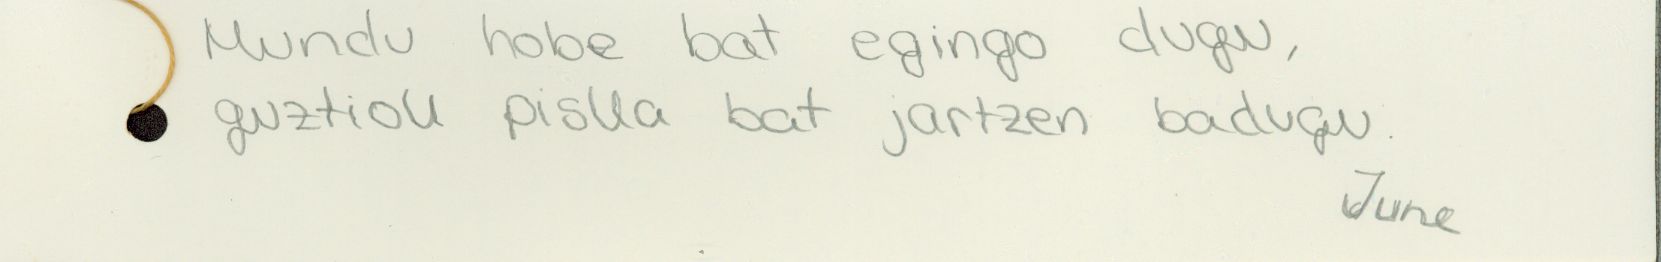 Mundu hobe bat egingo dugu,
guztiok piska bat jartzen badugu.
June